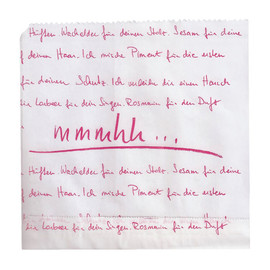 Hüften Wacholder für deinen Stolz. Sesam für deine
deinen Haar. Ich mische Piment für die ersten
für deinen Schutz. Ich verleihe dir einen Hauch
Lorbeer für dein Singen. Rosmarin für den Duft
mmmhh...
Hüften Wacholder für deinen Stolz. Sesam für deine
deinen Haar. Ich mische Piment für die ersten
Lorbeer für dein Singen. Rosmarin für den Duft